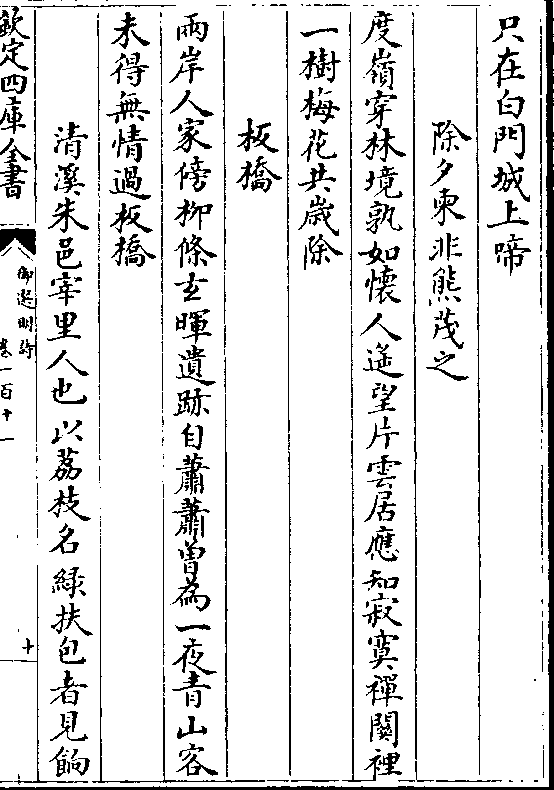 只在白門城上啼
除夕柬非熊茂之
度嶺穿林境孰如懷人遥望片雲居應知寂寞禪關裡
一樹梅花共歲除
板橋
兩岸人家傍柳條玄暉遺跡自蕭蕭曽為一夜青山客
未得無情過板橋
清溪朱邑宰里人也以荔枝名緑扶包者見餉
欽定四庫全書
御選明詩
卷一百十一
十